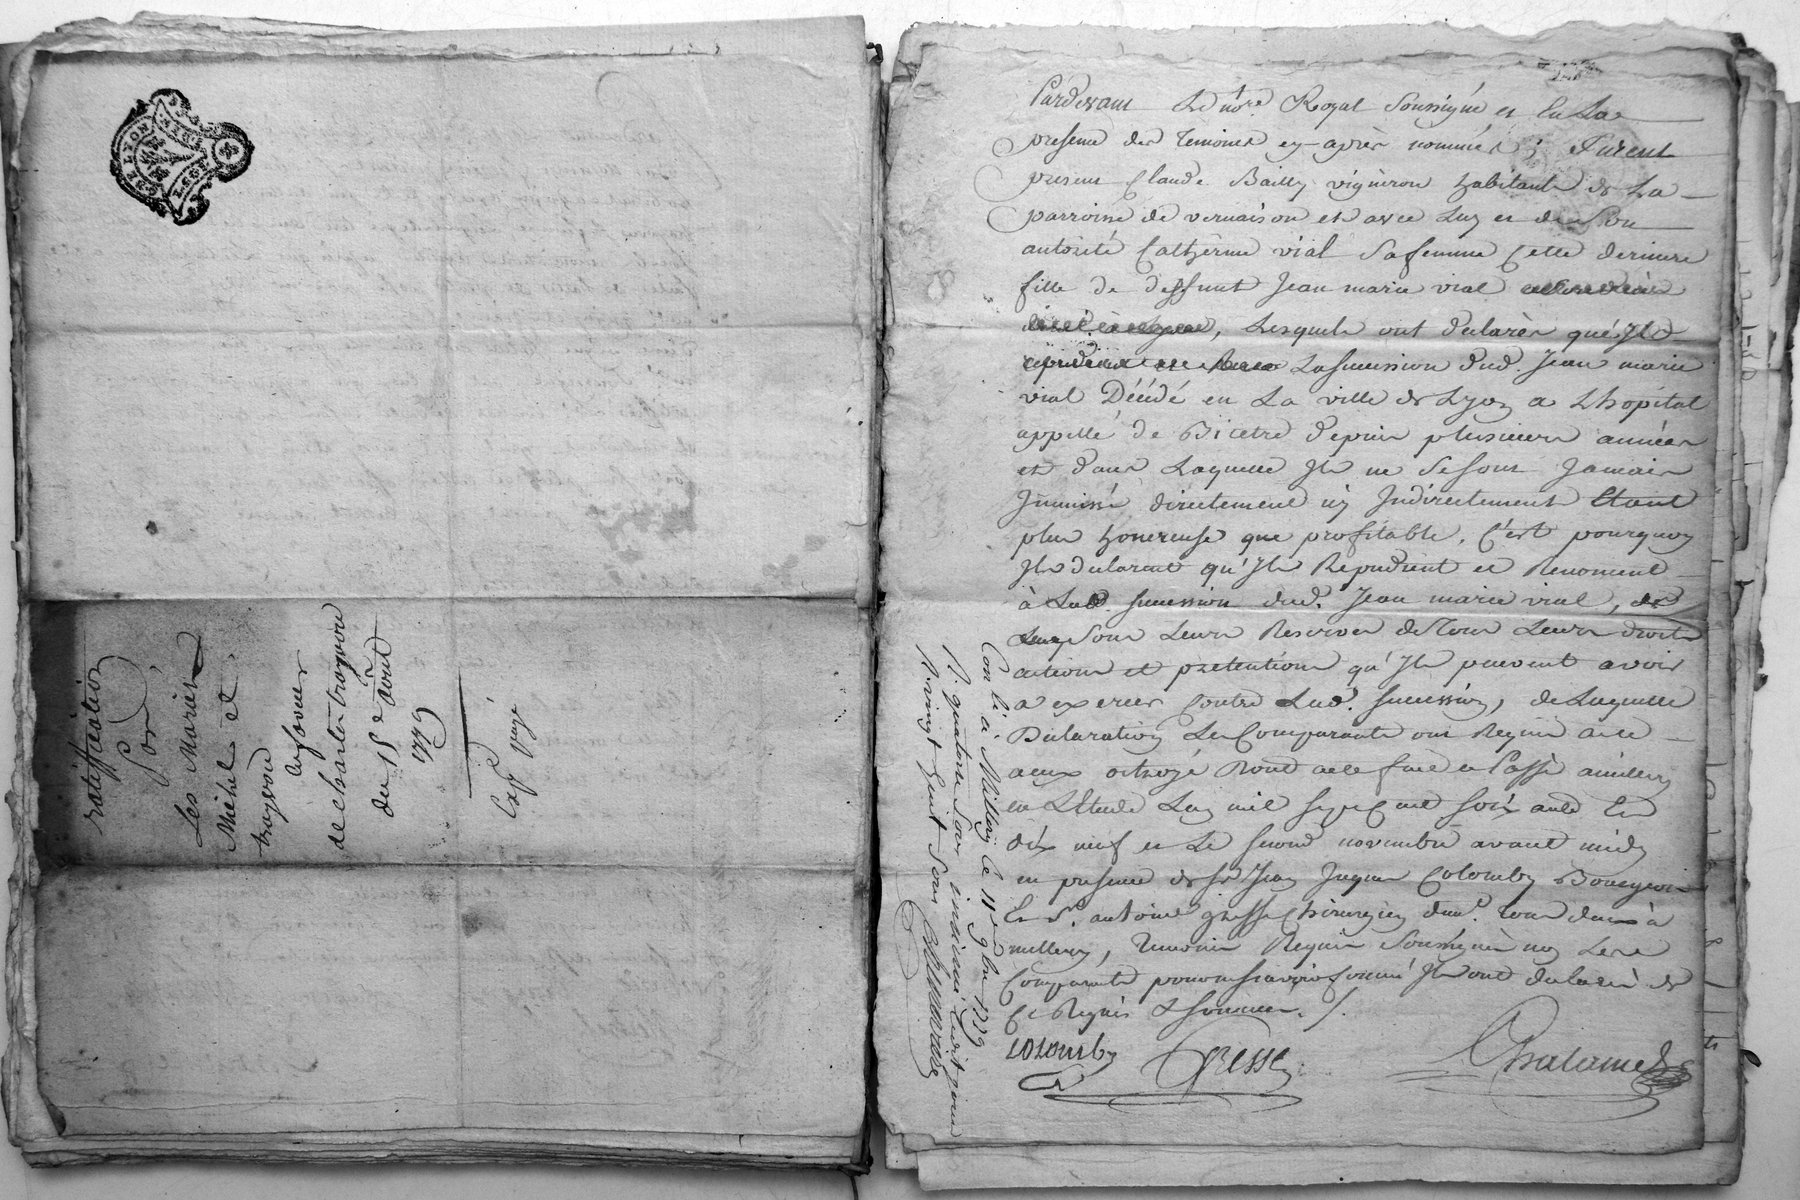 GE. LYON
ratiffication
Pour
Les Mariés
Michel et
troyvou
En faveur
de charle troyvou
du 15e aout
1779
Exp. payé
Pardevant Le nore. Royal soussigné et En La
presence des temoins cy-après nommés ; Furent
presens Claude Bailly vigneron habitant de La
parroisse de vernaison et avec Luy et de Son
autorité Catherine vial Sa femme Cette derniere
fille de deffunt Jean marie vial
Lesquels ont declarés qu'Ils
La succession dud. Jean marie
vial Décédé en La ville de Lyon a L'hopital
appellé de Bicetre depuis plusieurs années
et dans Laquelle Ils ne se sont Jamais
Immissé directement ny Indirectement Etant
plus honereuse que profitable, C'est pourquoy
Ils declarent qu'Ils Repudient et Renoncent
à Lad. succession dud. Jean marie vial,
sous Leurs Reserves de tous Leurs droits
actions et pretentions qu'Ils peuvent avoir
a exercer Contre Lad. succession, de Laquelle
Declaration Les Comparants ont Requis acte
a eux octroyé Dont acte fait et Passé a millery
en L'Etude L'an mil sept Cent soixante Et
dix neuf et Le second novembre avant midy
en presence de sr. Jean Jaques Colomby Bourgeois
Et sr. antoine gresse Chirurgien demt. tous deux à
millery, temoins Requis soussignés non Les
Comparants pour ne sçavoir signer Ils ont declaré de
Ce Requis & sommés ./.
Colomby
Gresse
Chalamel
Con lé a Millery le 11e 9bre 1779
R. quatorze sous
R. vingt huit sous